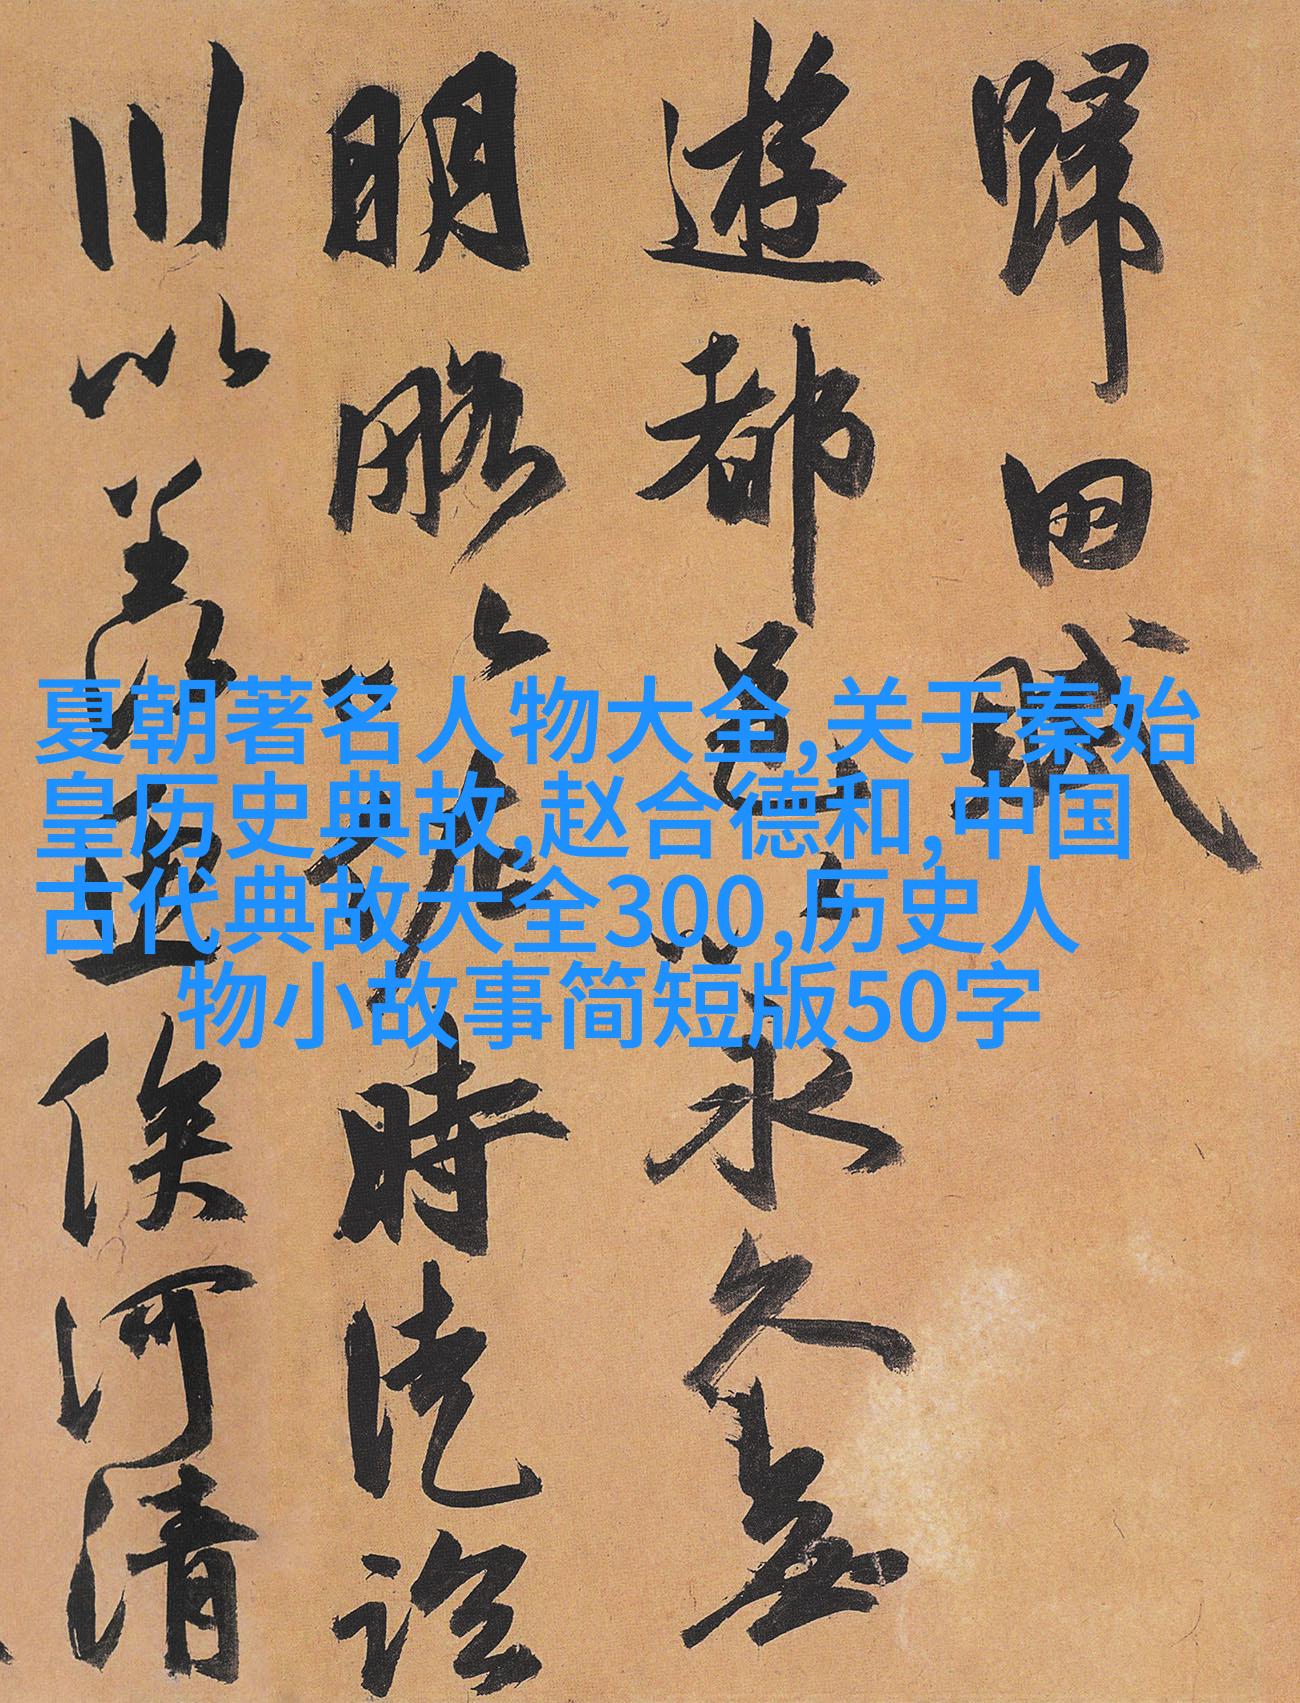 歸田賦
遊都邑以永久無
明略以佐時徒臨
川以羡魚俟河清
夏朝著名人物大全,关于秦始
皇历史典故,赵合德和,中国
古代典故大全300,历史人
物小故事简短版50字